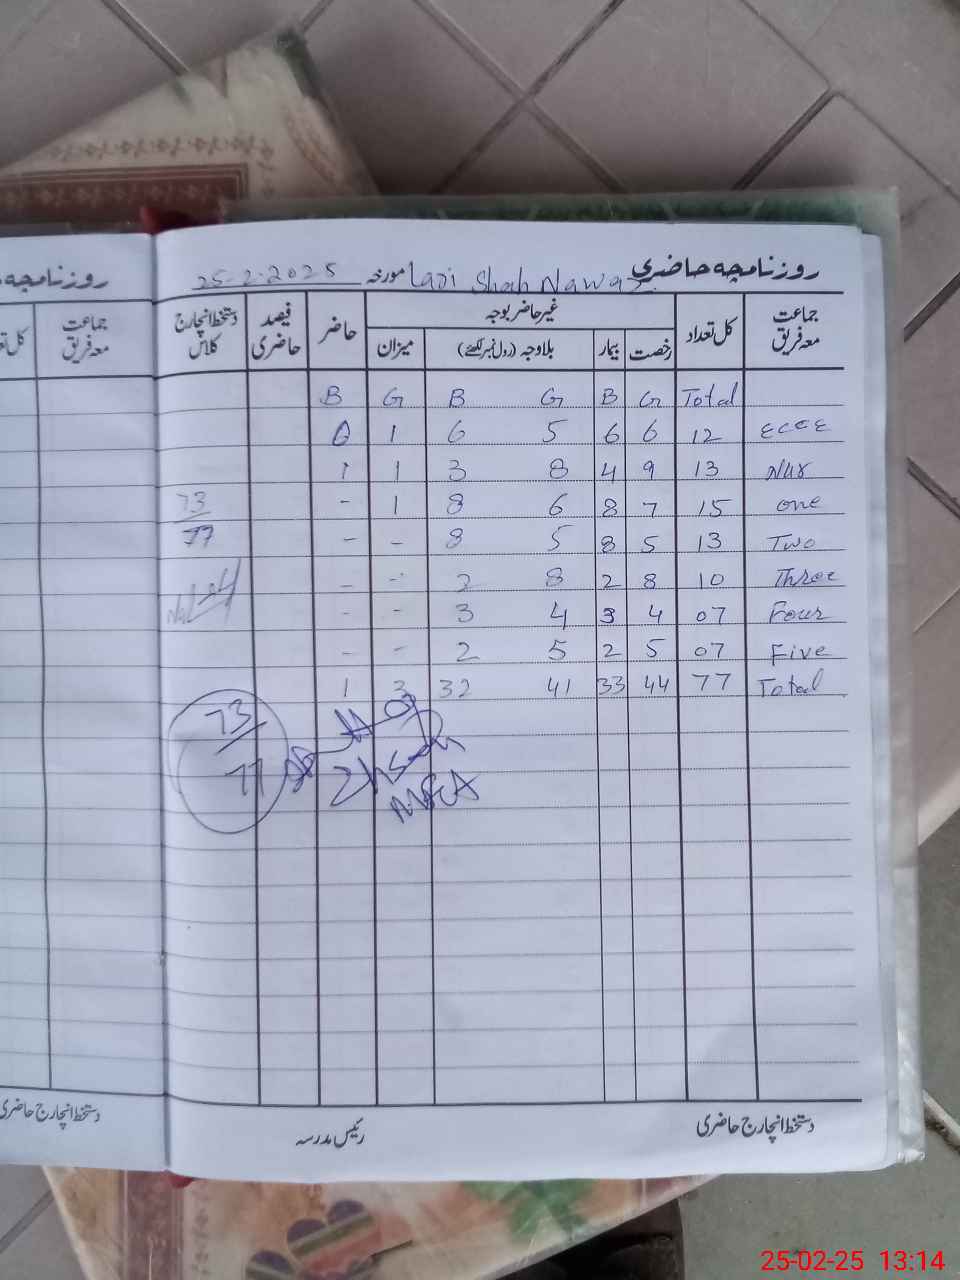 روزنامچہ حاضری Ladi Shah Nawaz مورخہ 25-2-2025
جماعت معہ فریق کل تعداد غیر حاضر بوجہ حاضر فیصد حاضری دستخط انچارج کلاس
رخصت بیمار بلاوجہ (رول نمبر لکھئے) میزان
B G B G B G Total
0 1 6 5 6 6 12 ECCE
1 1 3 8 4 9 13 Nur
- 1 8 6 8 7 15 one
- - 8 5 8 5 13 Two
- - 2 8 2 8 10 Three
- - 3 4 3 4 07 Four
- - 2 5 2 5 07 Five
1 3 32 41 33 44 77 Total
73
77
73
77
Ahsan
MEA
دستخط انچارج حاضری رئیس مدرسہ
روزنامچہ
جماعت معہ فریق
دستخط انچارج حاضری
25-02-25 13:14